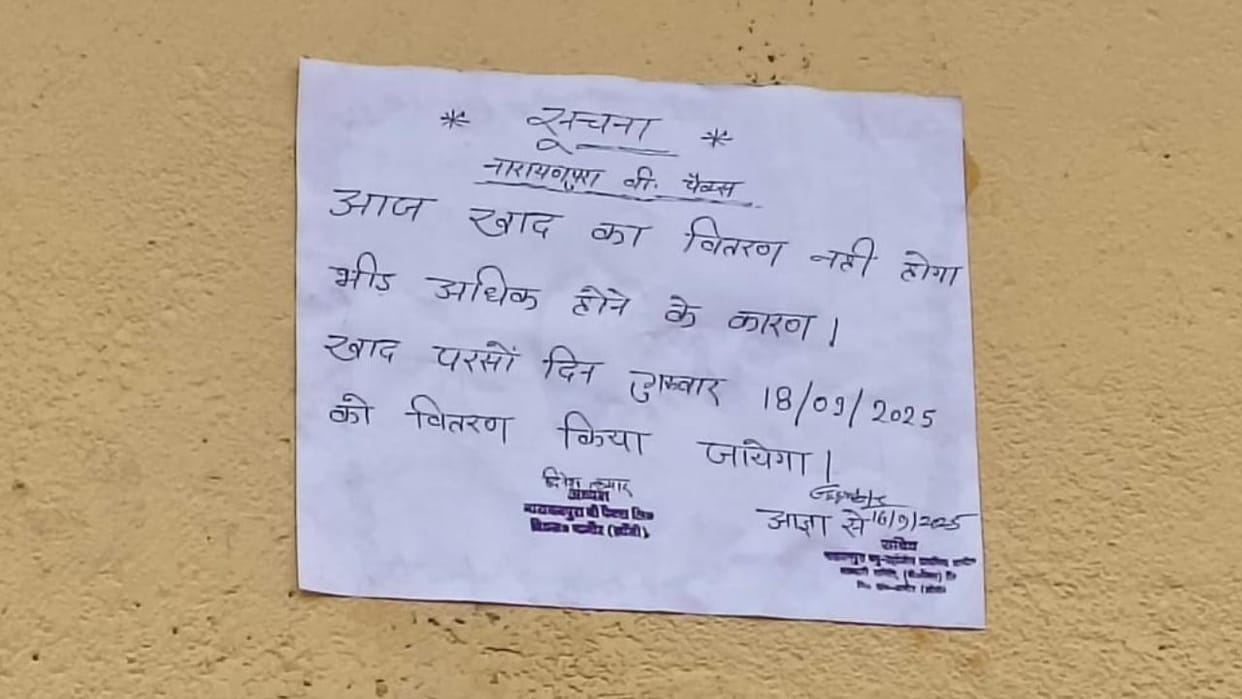 * सूचना *
नारायणपुरा बी. पैक्स
आज खाद का वितरण नहीं होगा
भीड़ अधिक होने के कारण।
खाद परसों दिन गुरूवार 18/09/2025
को वितरण किया जायेगा।
दिनेश कुमार
अध्यक्ष
आज्ञा से 16/9/2025
सचिव